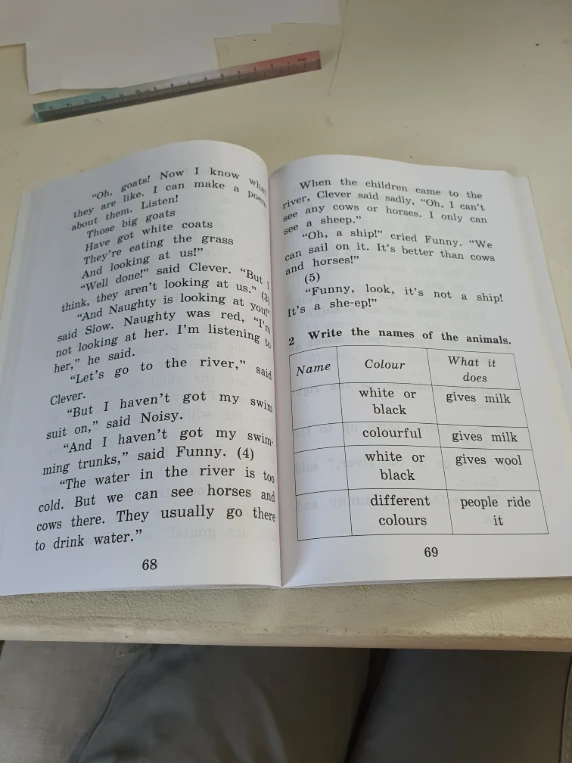 "Oh, goats! Now I know what
they are like. I can make a poem
about them. Listen!
Those big goats
Have got white coats
They're eating the grass
And looking at us!"
"Well done!" said Clever. "But I
think, they aren't looking at us." (3)
"And Naughty is looking at you!"
said Slow. Naughty was red, "I'm
not looking at her. I'm listening to
her," he said.
"Let's go to the river," said
Clever.
"But I haven't got my swim
suit on," said Noisy.
"And I haven't got my swim-
ming trunks," said Funny. (4)
"The water in the river is too
cold. But we can see horses and
cows there. They usually go there
to drink water."
68
When the children came to the
river, Clever said sadly, "Oh, I can't
see any cows or horses. I only can
see a sheep."
"Oh, a ship!" cried Funny. "We
can sail on it. It's better than cows
and horses!"
(5)
"Funny, look, it's not a ship!
It's a she-ep!"
2 Write the names of the animals.
Name Colour What it
does
white or
black gives milk
colourful gives milk
white or
black gives wool
different
colours people ride
it
69